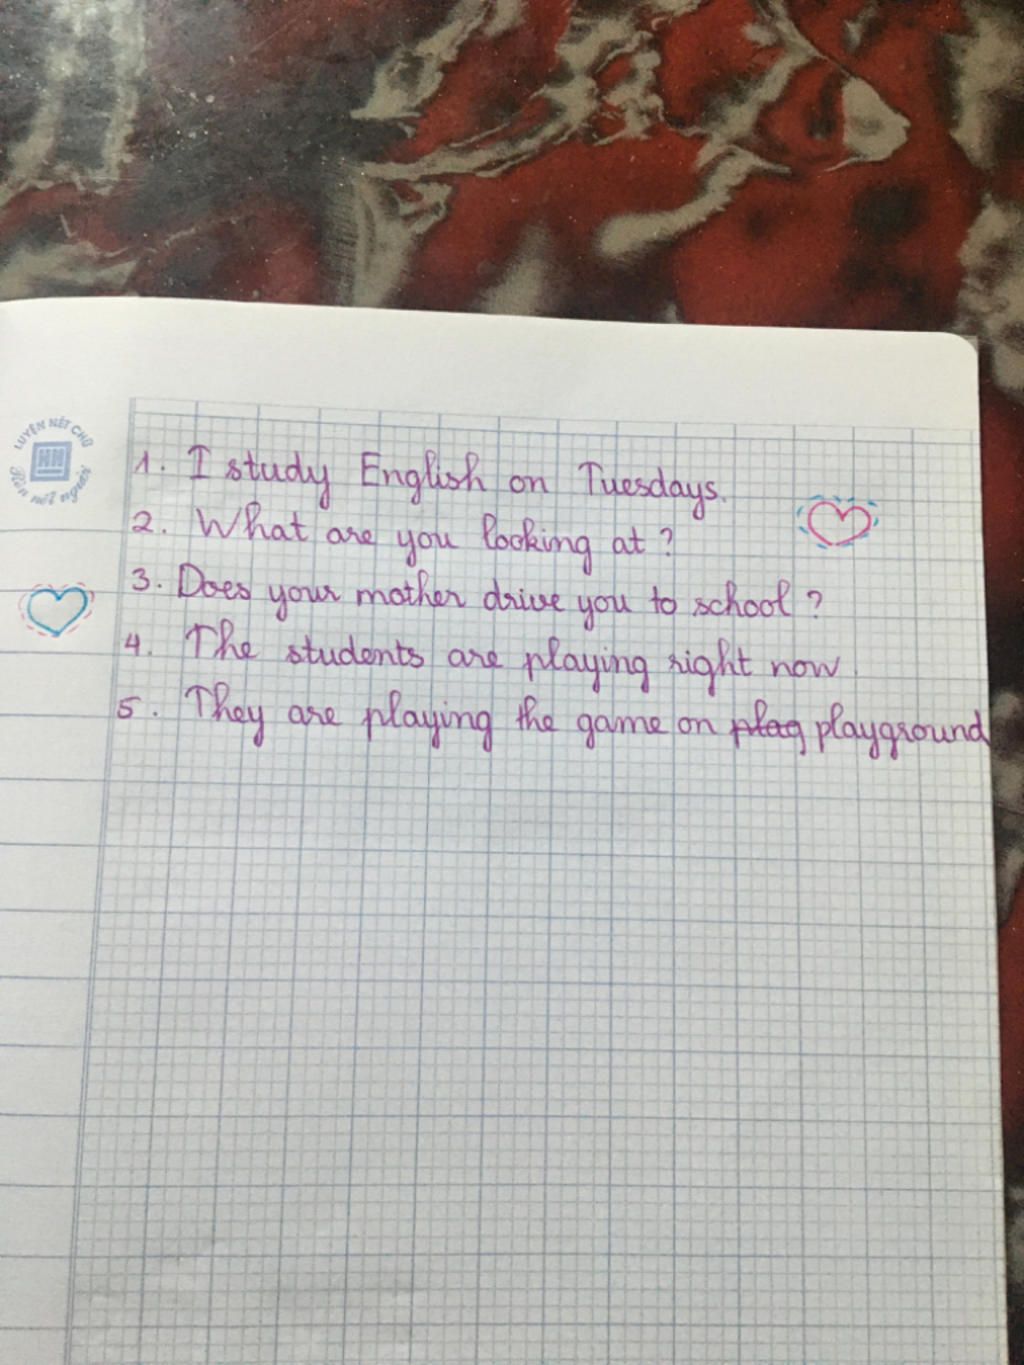 LUYỆN NÉT CHỮ
HN
Rèn nết người
1. I study English on Tuesdays.
2. What are you looking at ?
3. Does your mother drive you to school ?
4. The students are playing right now.
5. They are playing the game on play playground